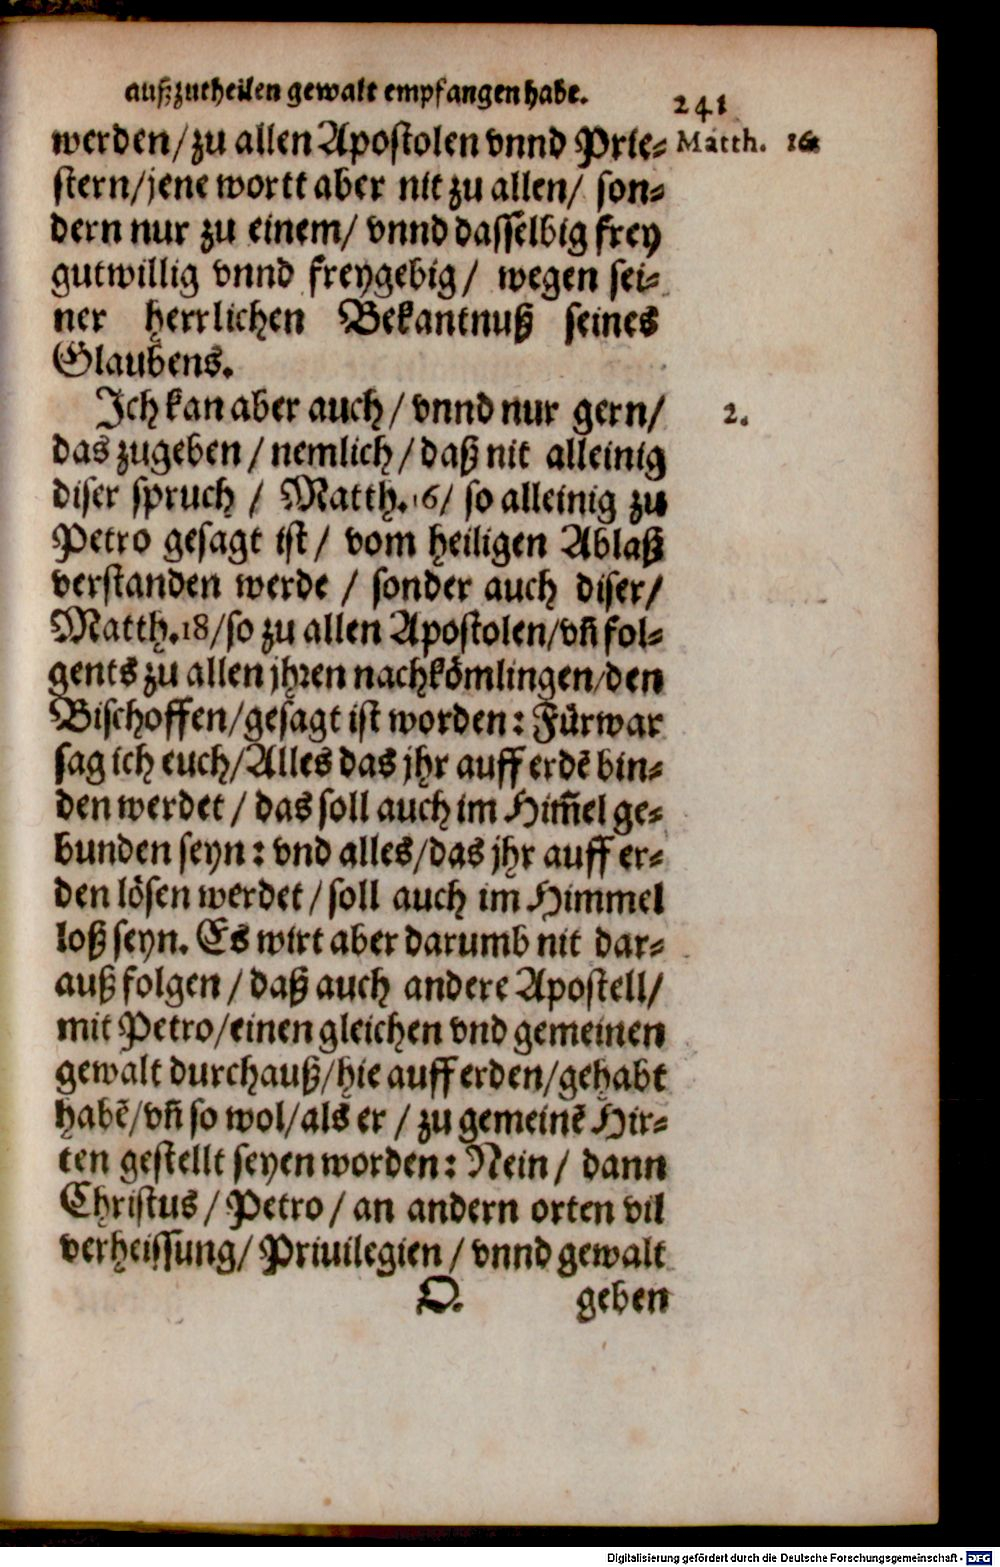 außzutheilen gewalt empfangen habe. 241
werden/zu allen Apostolen vnnd Prie⸗ Matth. 16
stern/jene wortt aber nit zu allen/ son⸗
dern nur zu einem/ vnnd dasselbig frey
gutwillig vnnd freygebig/ wegen sei⸗
ner herrlichen Bekantnuß seines
Glaubens.
Ich kan aber auch/ vnnd nur gern/ 2.
das zugeben/ nemlich/ daß nit alleinig
diser spruch / Matth. 16/ so alleinig zu
Petro gesagt ist/ vom heiligen Ablaß
verstanden werde / sonder auch diser/
Matth. 18/so zu allen Apostolen/vñ fol⸗
gents zu allen jhren nachkömlingen/den
Bischoffen/gesagt ist worden: Fürwar
sag ich euch/Alles das jhr auff erdē bin⸗
den werdet / das soll auch im Him̃el ge⸗
bunden seyn: vnd alles/das jhr auff er⸗
den lösen werdet / soll auch im Himmel
loß seyn. Es wirt aber darumb nit dar⸗
auß folgen / daß auch andere Apostell/
mit Petro/einen gleichen vnd gemeinen
gewalt durchauß/hie auff erden/gehabt
habē/vñ so wol/als er / zu gemeinē Hir⸗
ten gestellt seyen worden: Nein/ dann
Christus / Petro / an andern orten vil
verheissung/ Priuilegien / vnnd gewalt
Q. geben
Digitalisierung gefördert durch die Deutsche Forschungsgemeinschaft - DFG